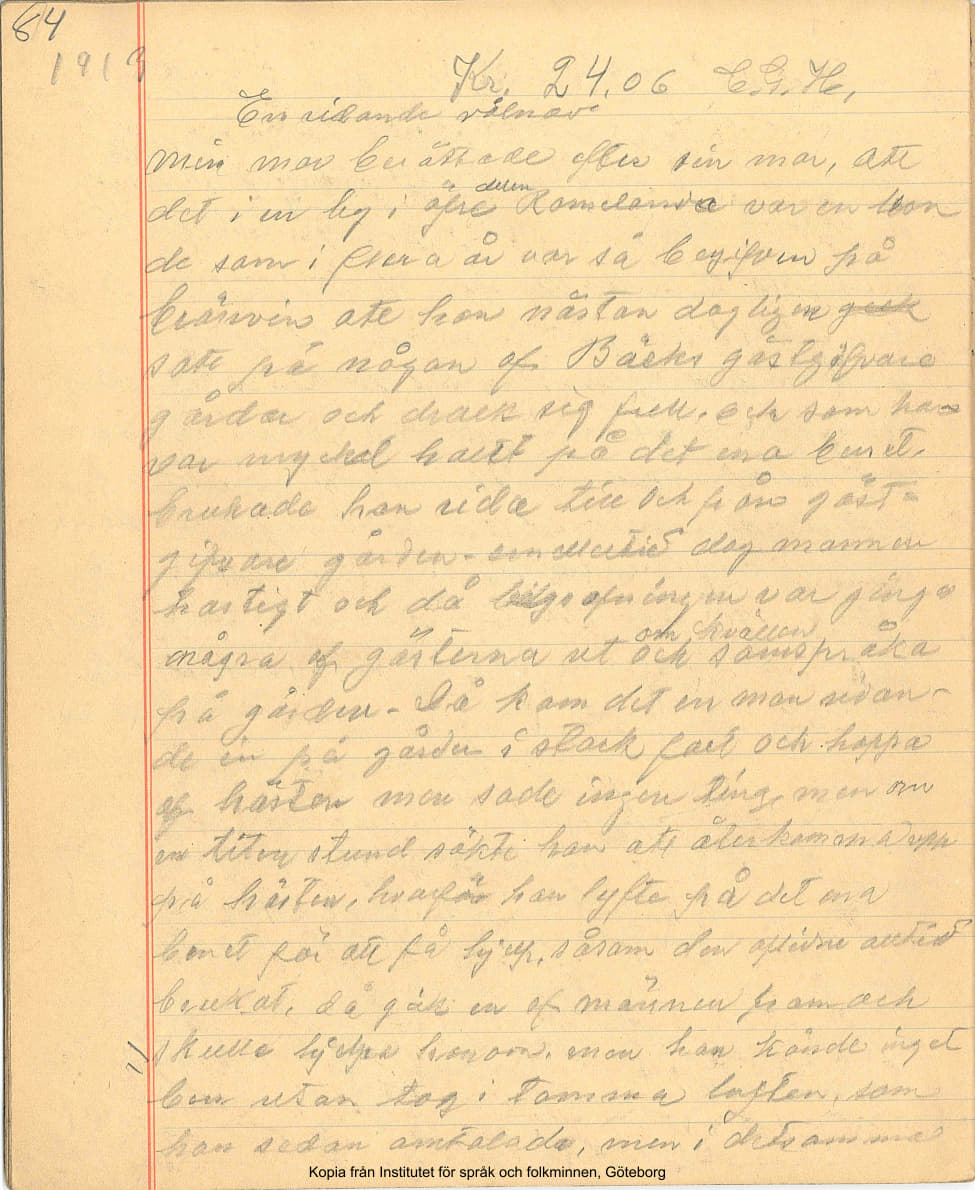 84
1913
Kr. 24.06 C.G.H.
En ridande vålnad
min mor berättade efter sin mor, att
det i en by i öfre delen Romelanda var en bon
de som i flera år var så begifven på
bränvin att han nästan dagligen geek
satt på någon af Bäcks gästgifvare
gårdar och drack sig full. och som han
var myckel halt på det ena benet.
brukade han rida till och från gäst-
gifvare gården - emellertid dog mannen
hastigt och då var gingo
några af gästerna ut om kvällen och samspråka
på gården - Då kom det en man ridan-
de in på gården i stark fart och hoppa
af hästen men sade ingen ting, men om
en liten stund sökte han att återkomma upp
på hästen, hvarför han lyfte på det ena
benet för att få hjelp, såsom den aflidne alltid
brukat. då gik en af männen fram och
skulle hjelpa honom. men han kände inget
ben utan tog i tomma luften, som
han sedan omtalade, men i detsamma
11
Kopia från Institutet för språk och folkminnen, Göteborg